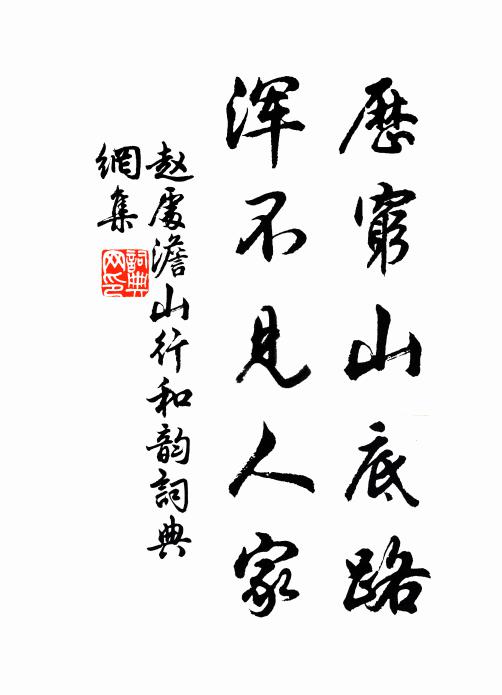 歷窮山底路
浑不見人家
赵處澹山行和韵詞典
網集
詞典
网印